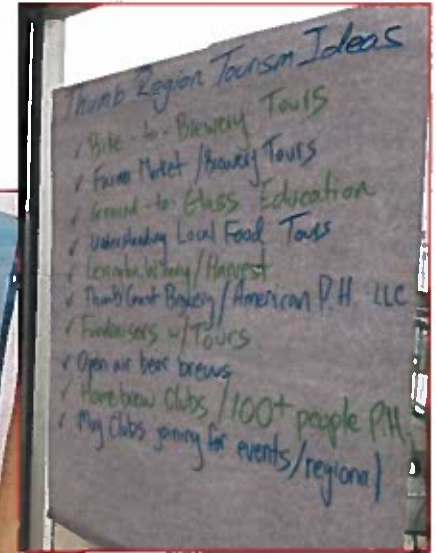 Thumb Region Tourism Ideas
✓ Bike-to-Brewery Tours
✓ Farm Market/Brewery Tours
✓ Ground-to-Glass Education
✓ Understanding Local Food Tours
✓ History/Harvest
✓ Thumb Coast Brewery/American P.H. LLC
✓ Fundraisers w/Tours
✓ Open air beer brews
✓ Homebrew Clubs/100+ people P.H.
✓ Mug Clubs joining for events/regional